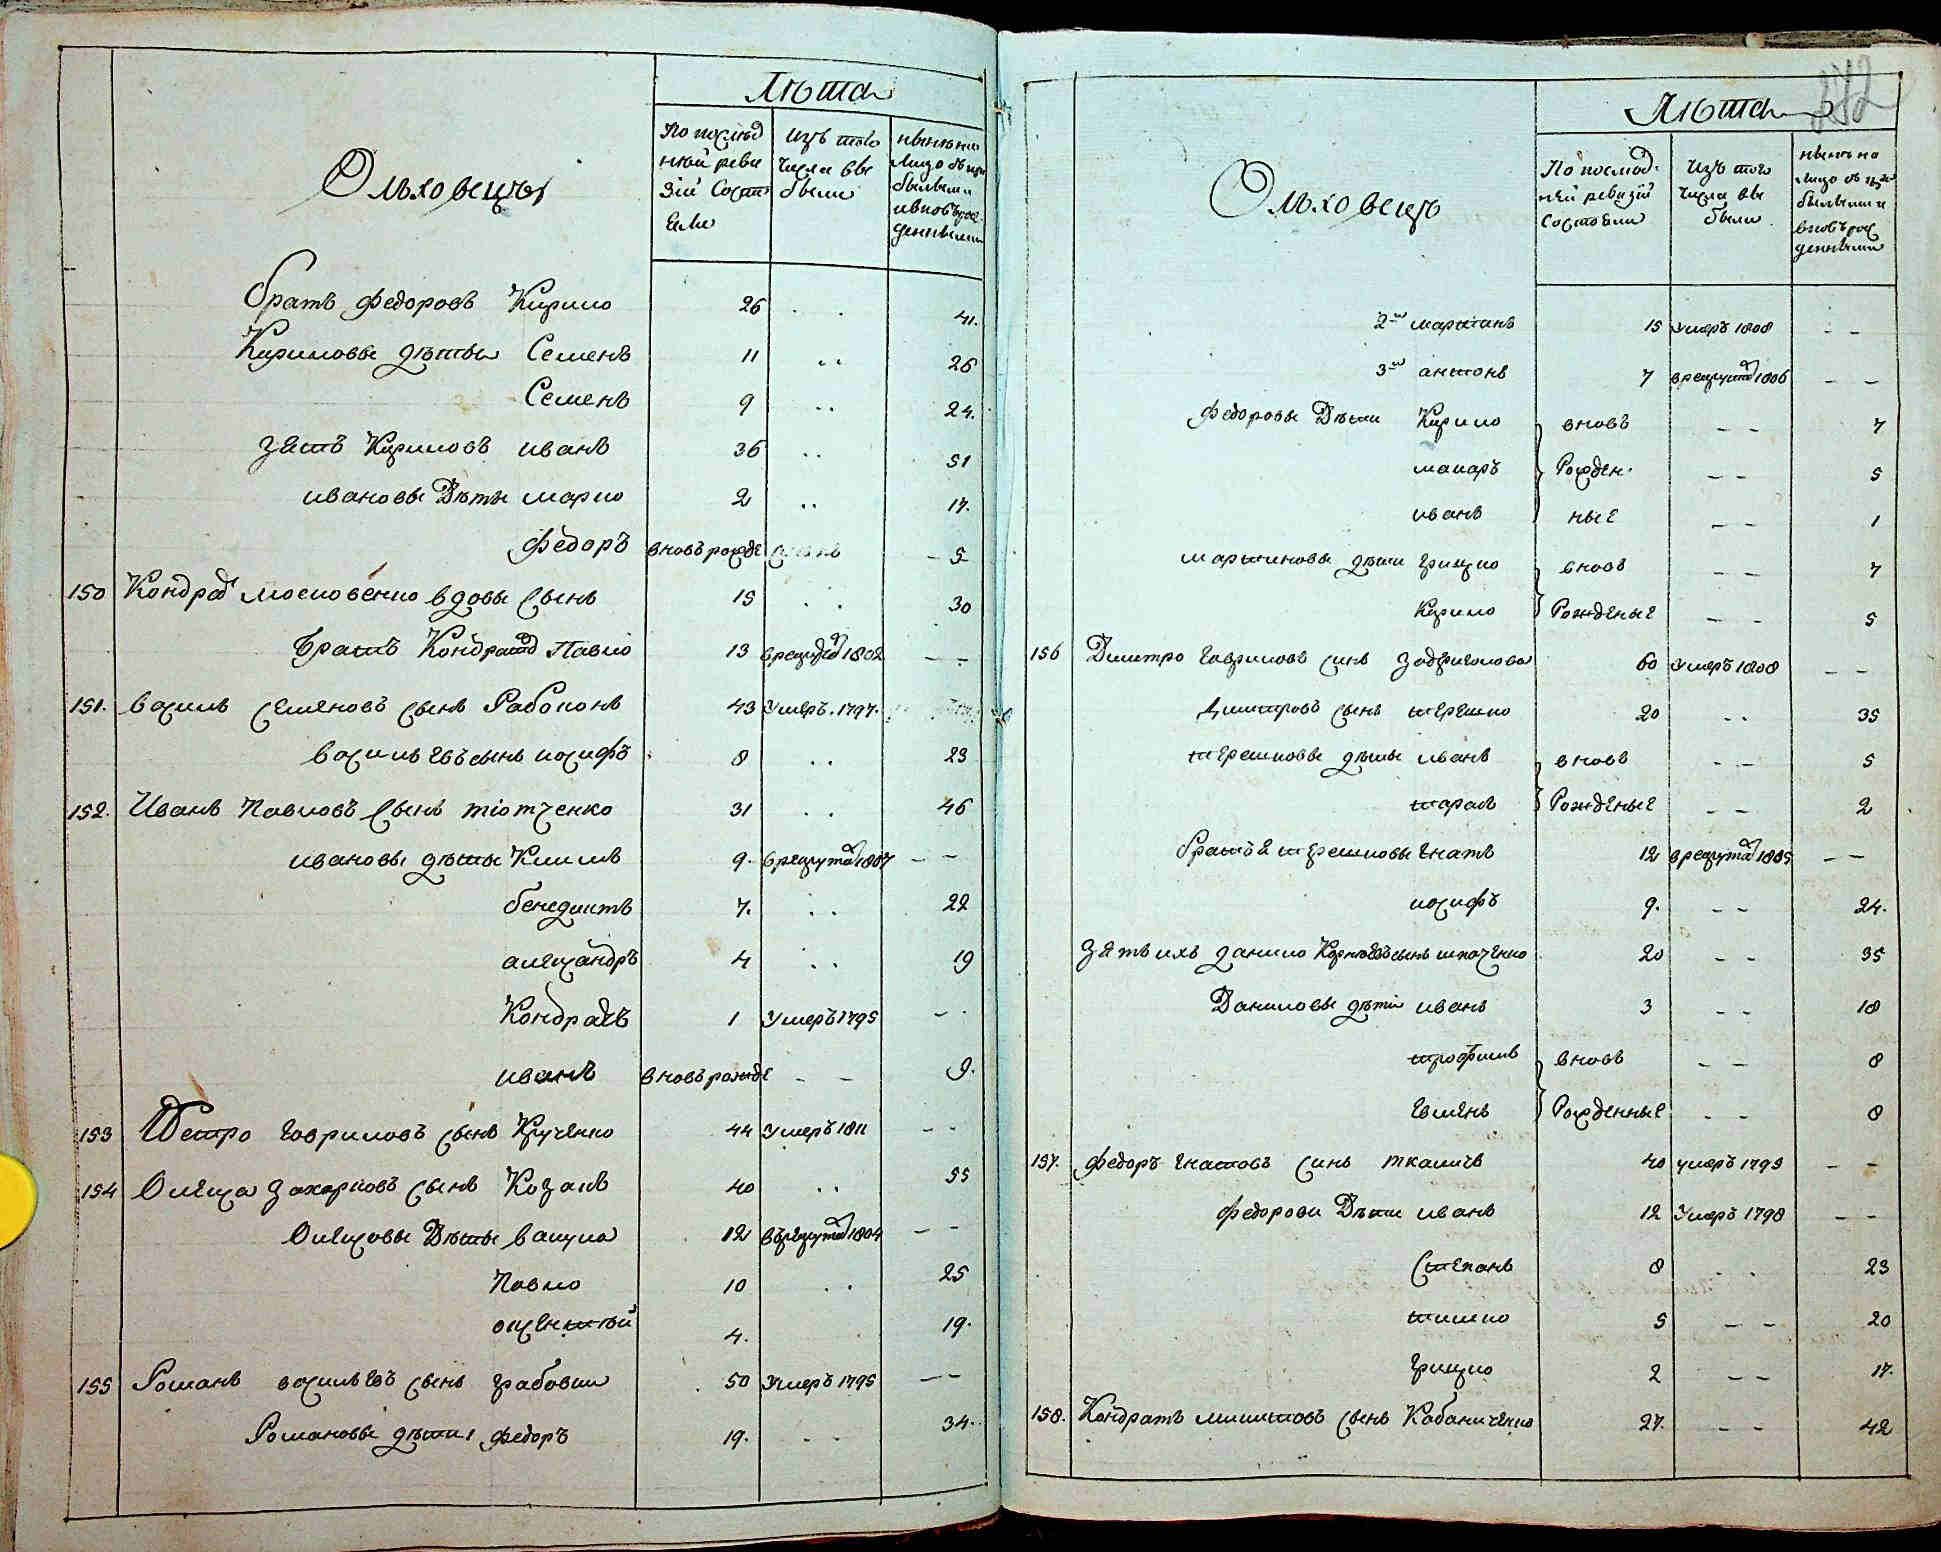 Лѣта
Ольховецъ
По послѣд
ней реви
зіи Сост
яли
Изъ того
числа вы
были
нынѣ на
Лицо съ при
былыми
ивновь рож
денными
братъ Федоровъ Кирило 26 41.
Кириловы дѣты Семенъ 11 26
Семенъ 9 24.
Зятъ Кириловъ иванъ 36 51
ивановы Дѣты марко 2 17.
Федоръ вновъ рожде 5
150 Кондрат московенко вдовы сынъ 15 30
братъ Кондрата Павло 13 врекрута 1802 — —
151. василь семеновъ сынъ Рабоконъ 43 Умеръ. 1797.
васильевъ сынъ иосифъ 8 23
152. Иванъ Павловъ сынъ тіотченко 31 46
ивановы дѣты Климъ 9. врекрута 1807 — —
бенедиктъ 7. 22
александръ 4 19
Кондратъ 1 Умеръ 1795 —
иванъ вновъ рожде — — 9.
153 Петро гавриловъ сынъ Крученко 44 Умеръ 1811 — —
154 Олекса захарковъ сынъ Козакъ 40 55
Олексовы Дѣты васило 12 въ рекрута 1804 — —
Павло 10 25
оксентий 4. 19.
155 Романъ васильевъ сынъ грабовии 50 Умеръ 1795 — —
Романовы дѣти федоръ 19. 34.
272
Лѣта
Ольховецъ
По послѣд-
ней ревизій
состояли
Изъ того
числа вы
были
нынѣ на
лицо съ при
былыми и
вновъ рож
денными
2й мартинъ 15 умеръ 1808 — —
3й антонъ 7 врекрута 1806 — —
Федоровы Дѣти Кирило вновъ — — 7
макаръ Рожден- — — 5
иванъ ные — — 1
мартиновы дѣти грицко вновъ — — 7
Кирило Рожденые — — 5
156 Дмитро гавриловъ синъ 60 Умеръ 1808 — —
Димитровъ сынъ терешко 20 35
терешковы дѣты иванъ вновъ — — 5
тарасъ Рожденые — — 2
братья терешковы гнатъ 12 врекрута 1805 — —
иосифъ 9. — — 24.
Зятъ ихъ данило Корнѣевъ сынъ шпаченко 20 — — 35
Даниловы дѣти иванъ 3 — — 18
трофимъ вновъ — — 8
евменъ Рожденные — — 8
157. Федоръ гнатовъ синъ ткачичъ 40 умеръ 1795 — —
федорови Дѣти иванъ 12 Умеръ 1798 — —
Степанъ 8 23
тишко 5 — — 20
грицко 2 — — 17.
158. Кондратъ микитовъ сынъ Кабаниченко 27. — — 42